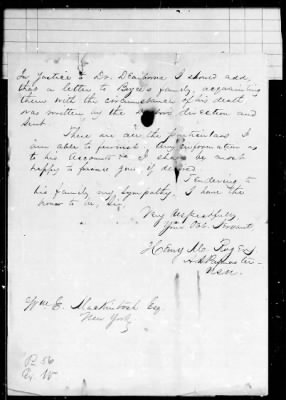 In justice to Dr. Dearborne I should add,
that a letter to Boyce's family, acquainting
them with the circumstance of his death
was written by the direction and
sent.
These are all the particulars I
am able to furnish, any information as
to his accounts &c I shall be most
happy to furnish you, if desired.
Tendering to
his family my sympathy. I have the
honor to be, Sir,
Very Respectfully
Your Obt. Servant
Henry M.
A. A. Paymaster
U.S.N.
Wm E. Mackintosh Esq.
New York
P. 56